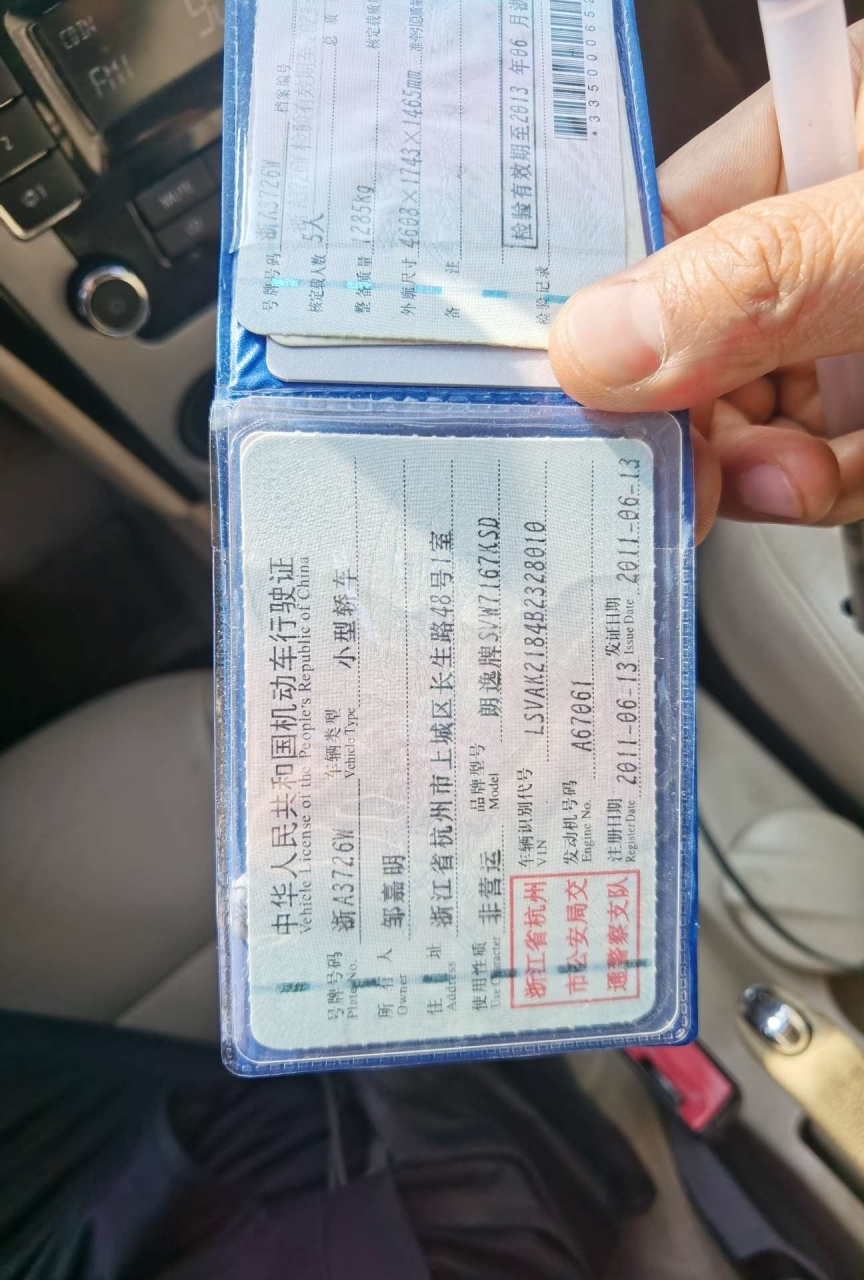 中华人民共和国机动车行驶证
Vehicle License of the People's Republic of China
号牌号码 浙A3726W 车辆类型 小型轿车
Plate No. Vehicle Type
所有人 邹嘉明
Owner
住址 浙江省杭州市上城区长生路48号1室
Address
使用性质 非营运 品牌型号 朗逸牌SVW7167KSD
Use Character Model
浙江省杭州
市公安局交
通警察支队
车辆识别代号 LSVAK2184B2328010
VIN
发动机号码 A67061
Engine No.
注册日期 2011-06-13 发证日期 2011-06-13
Register Date Issue Date
号牌号码 浙A3726W 档案编号
核定载人数 5人 总质
整备质量 1285kg 核定载质
外廓尺寸 4608×1743×1465mm 准牵引总质
备注
检验记录 检验有效期至2013年06月
*33500006
FM1
MUTE
2